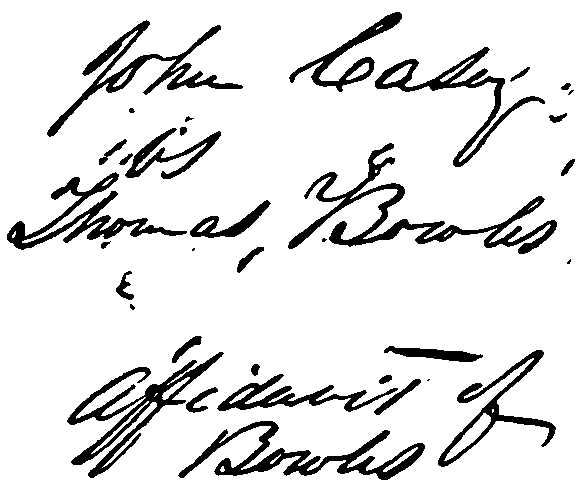 John Casey
vs
Thomas, Bowles
Affidavit of
Bowles